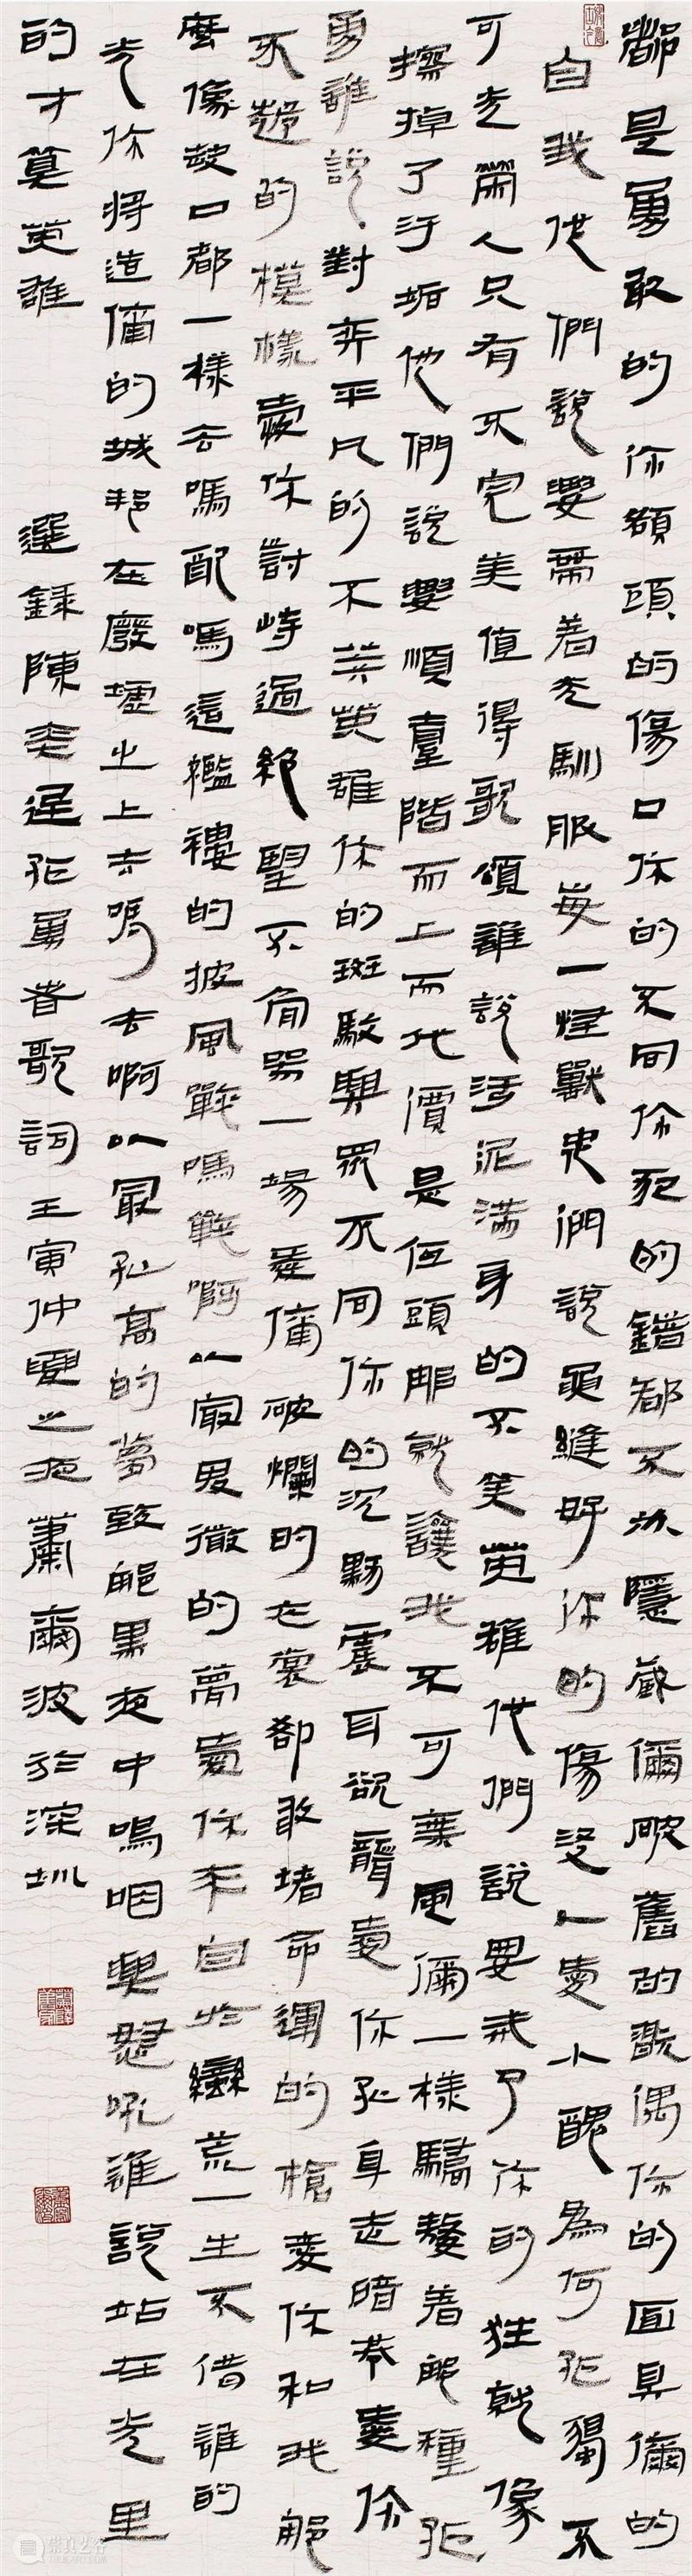 都是勇敢的你額頭的傷口你的不同你犯的錯都不必隱藏儞破舊的翫偶你的面具儞的
自我他們說要帶着光馴服每一怪獸他們說要縫好你的傷沒人愛小醜為何孤獨不
可光榮人只有不完美值得歌頌誰說污泥滿身的不算英雄他們說要戒了你的狂就像
擦掉了汙垢他們說要順臺階而上而代價是低頭那就讓我不可乘風儞一樣驕驁着那種孤
勇誰說對弈平凡的不算英雄你的斑駁與眾不同你的沉默震耳欲聾愛你孤身走暗巷愛你
不跪的模樣愛你對峙過絕望不肯哭一場愛儞破爛的衣裳卻敢堵命運的槍愛你和我那
麼像缺口都一樣去嗎配嗎這襤褸的披風戰嗎戰啊以最卑微的夢愛你來自於蠻荒一生不借誰的
光你將造儞的城邦在廢墟之上去嗎去啊以最孤高的夢致那黑夜中嗚咽與怒吼誰說站在光里
的才算英雄 選録陳奕迅孤勇者歌詞壬寅仲夏之夜蕭爾波於深圳